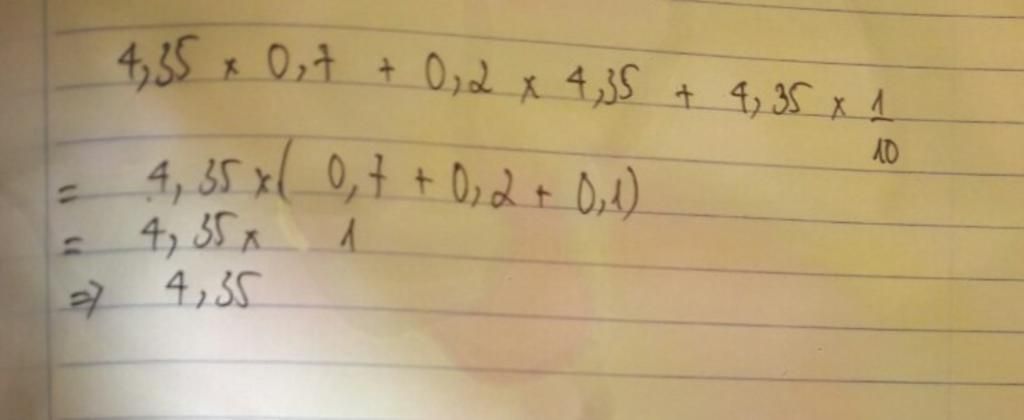 4,35 × 0,7 + 0,2 × 4,35 + 4,35 × 1/10
= 4,35 × ( 0,7 + 0,2 + 0,1)
= 4,35 × 1
⇒ 4,35